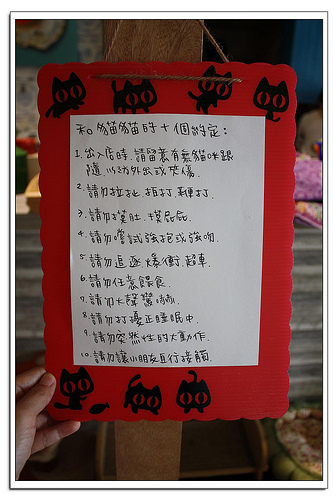 和貓貓的十個約定：
1. 出入店時，請留意有無貓咪跟
隨，以防外出或夾傷。
2. 請勿拉扯、拍打、鞭打。
3. 請勿摸肚、摸屁屁。
4. 請勿嚐試強抱或強吻。
5. 請勿追逐、爆衝、超車。
6. 請勿任意餵食。
7. 請勿大聲驚嚇。
8. 請勿打擾正睡眠中。
9. 請勿突然性的大動作。
10. 請勿讓小朋友自行接觸。